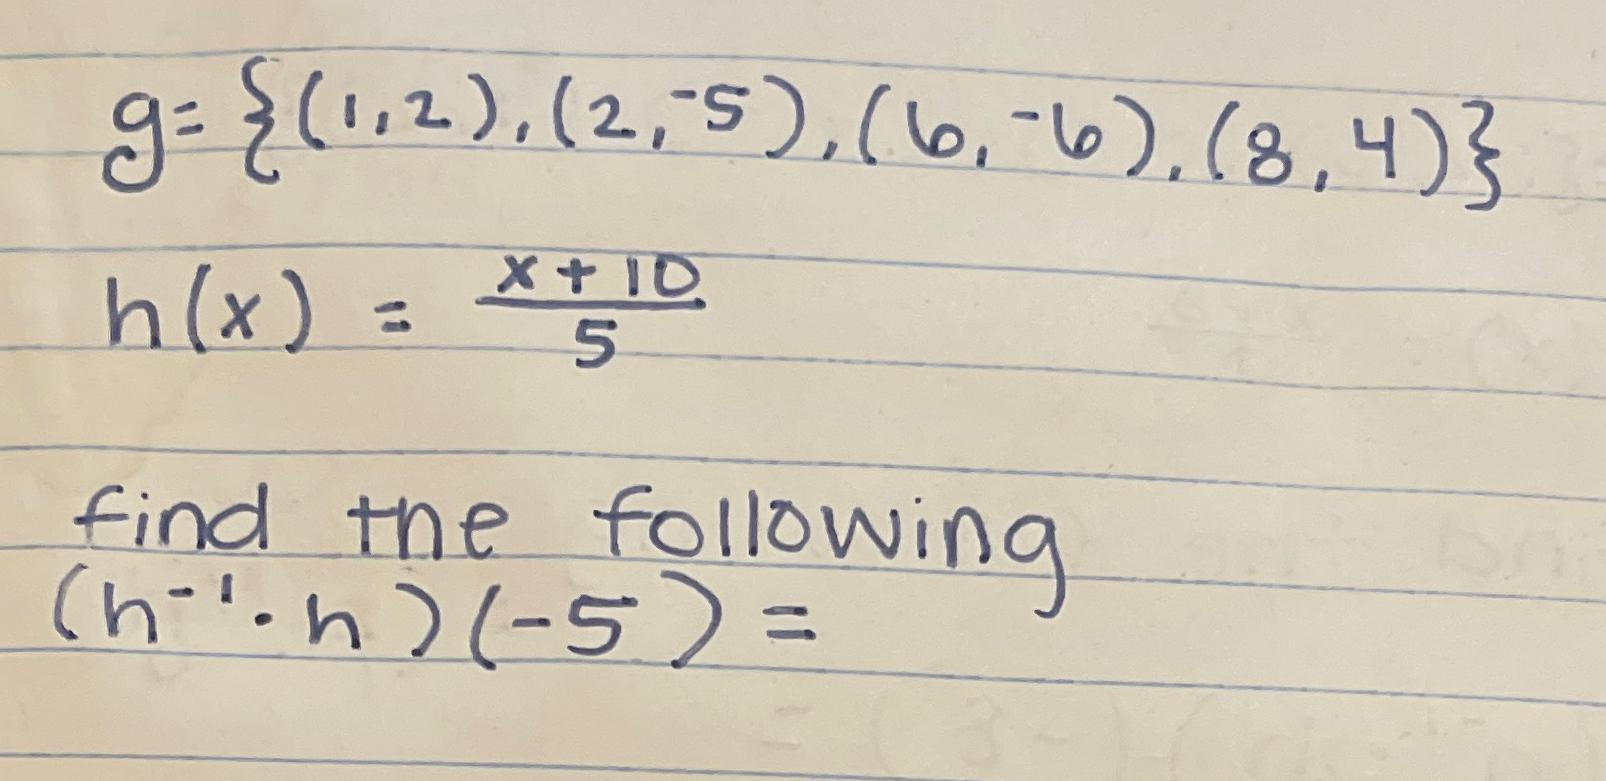 g= {(1,2), (2,-5), (6,-6), (8,4)}
h(x) = x+10/5
find the following
(h⁻¹·h)(-5) =